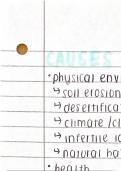 CAUSES
• physical env
↳ soil erosion
↳ desertifica
↳ climate /cl
↳ infertile la
↳ natural ha
• health